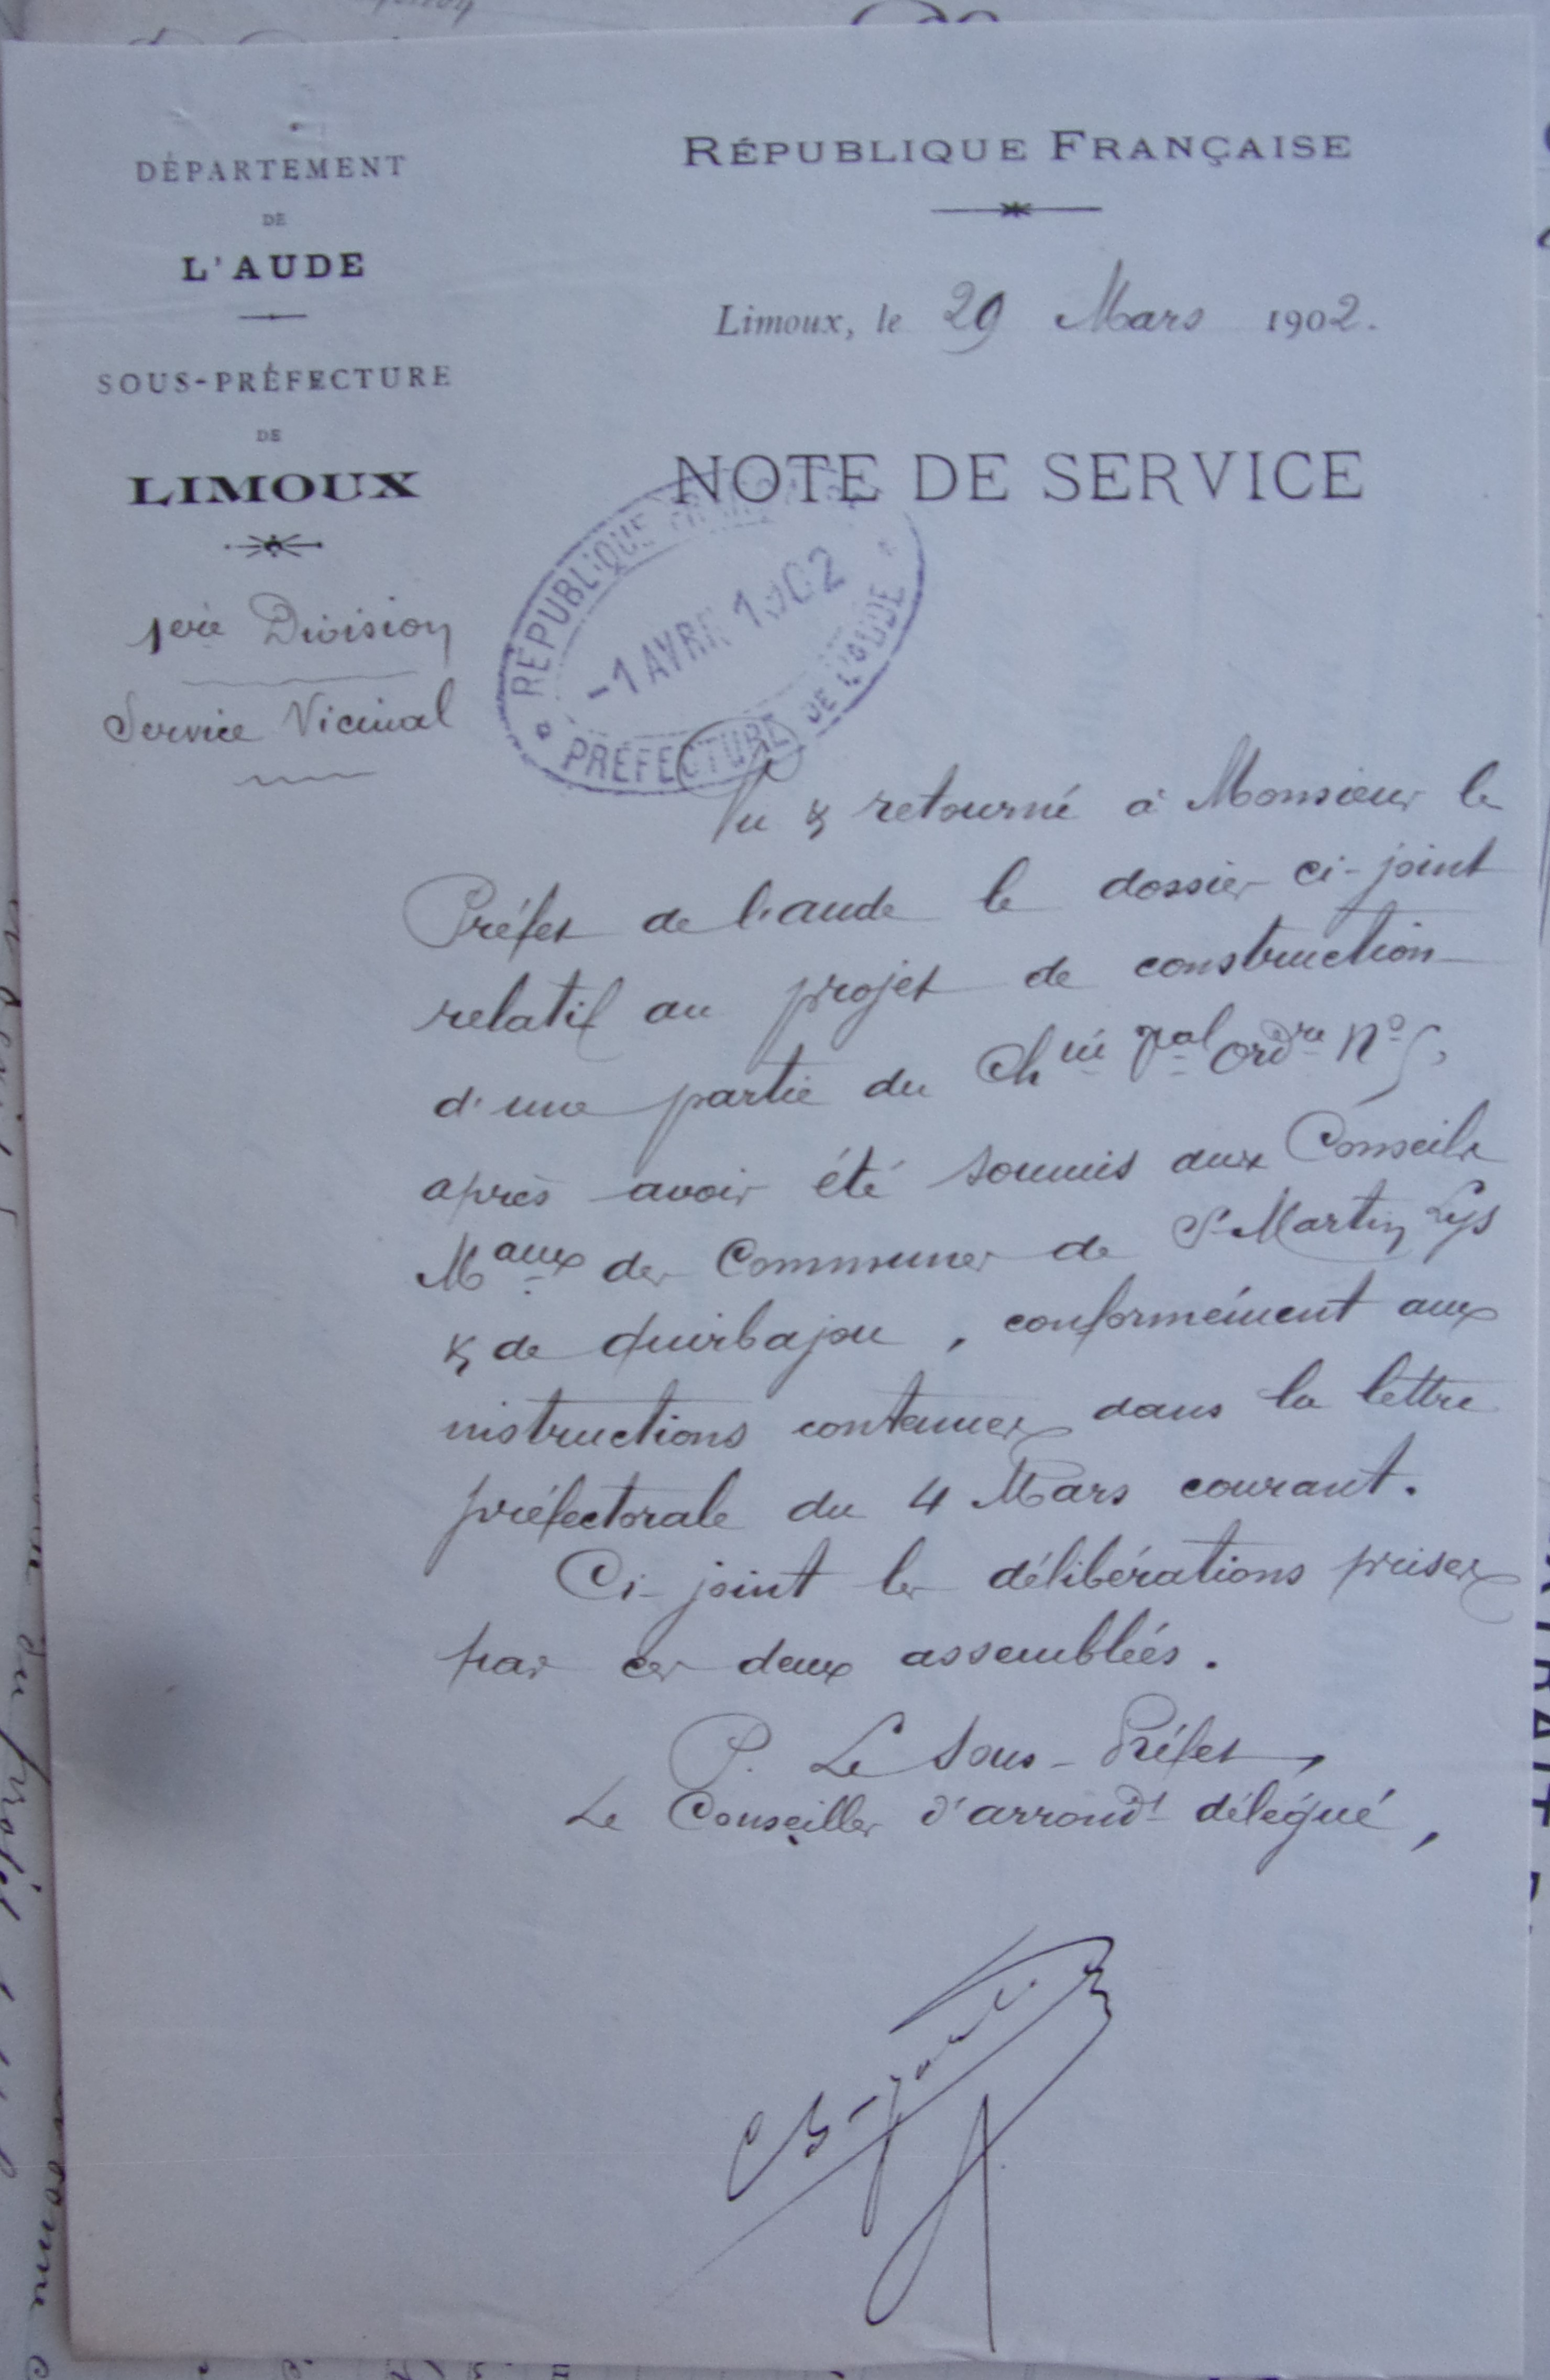 DÉPARTEMENT
DE
L'AUDE
SOUS-PRÉFECTURE
DE
LIMOUX
1ère Division
Service Vicinal
RÉPUBLIQUE FRANÇAISE
Limoux, le 29 Mars 1902.
NOTE DE SERVICE
RÉPUBLIQUE FRANÇAISE
-1 AVRIL 1902
PRÉFECTURE DE L'AUDE
Vu & retourné à Monsieur le
Préfet de l'aude le dossier ci-joint
relatif au projet de construction
d'une partie du Ch in Val ordre No 5,
après avoir été soumis aux Conseils
Maux des Communes de St Martin Lys
& de Quirbajou, conformément aux
instructions contenues dans la lettre
préfectorale du 4 Mars courant.
Ci-joint les délibérations prises
par ces deux assemblées.
P. Le Sous-Préfet,
Le Conseiller d'arrondt délégué,